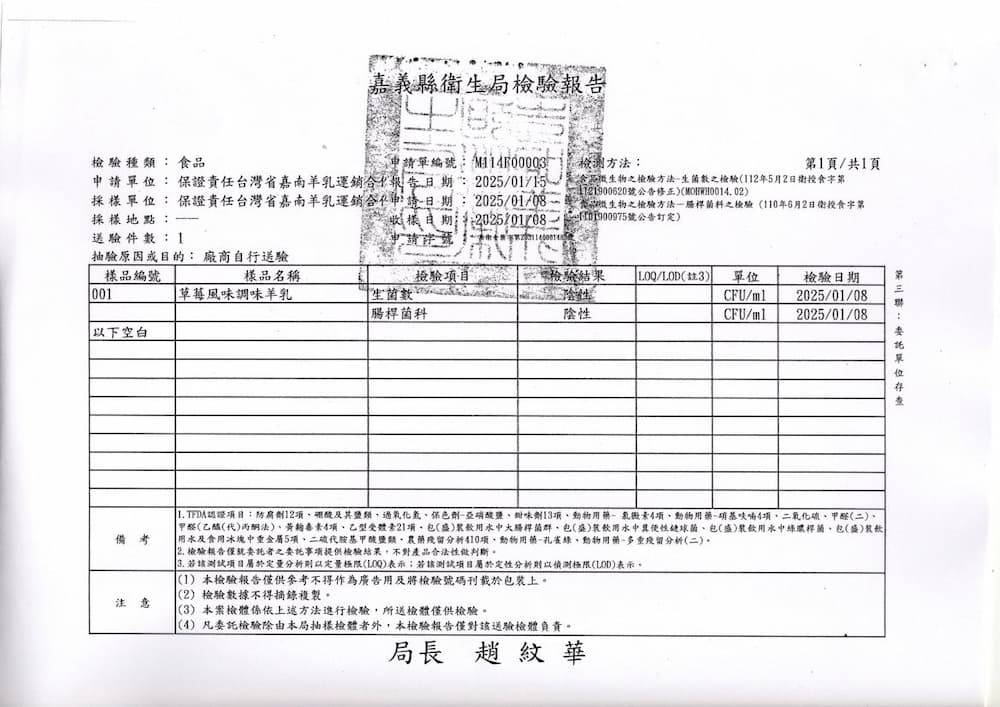 嘉義縣衛生局檢驗報告
檢驗種類：食品
申請單位：保證責任台灣省嘉南羊乳運銷合作
採樣單位：保證責任台灣省嘉南羊乳運銷合作
採樣地點：——
送驗件數：1
抽驗原因或目的：廠商自行送驗
申請單編號：M114F00003
報告日期：2025/01/15
申請日期：2025/01/08
收樣日期：2025/01/08
申請字號
檢測方法：
食品微生物之檢驗方法-生菌數之檢驗(112年5月2日衛授食字第
1121900620號公告修正)(MOHWH0014.02)
食品微生物之檢驗方法－腸桿菌科之檢驗 (110年6月2日衛授食字第
1101900975號公告訂定)
第1頁/共1頁
樣品編號 樣品名稱 檢驗項目 檢驗結果 LOQ/LOD(註3) 單位 檢驗日期
001 草莓風味調味羊乳 生菌數 陰性 CFU/ml 2025/01/08
腸桿菌科 陰性 CFU/ml 2025/01/08
以下空白
第三聯：委託單位存查
備 考
1.TFDA認證項目：防腐劑12項、硼酸及其鹽類、過氧化氫、保色劑-亞硝酸鹽、甜味劑13項、動物用藥- 氯黴素4項、動物用藥-硝基呋喃4項、二氧化硫、甲醛(二)、
甲醛(乙醯(代)丙酮法)、黃麴毒素4項、乙型受體素21項、包(盛)裝飲用水中大腸桿菌群、包(盛)裝飲用水中糞便性鏈球菌、包(盛)裝飲用水中綠膿桿菌、包(盛)裝飲
用水及食用冰塊中重金屬5項、二硫代胺基甲酸鹽類、農藥殘留分析410項、動物用藥-孔雀綠、動物用藥-多重殘留分析(二)。
2.檢驗報告僅就委託者之委託事項提供檢驗結果，不對產品合法性做判斷。
3.若該測試項目屬於定量分析則以定量極限(LOQ)表示；若該測試項目屬於定性分析則以偵測極限(LOD)表示。
注 意
(1) 本檢驗報告僅供參考不得作為廣告用及將檢驗號碼刊載於包裝上。
(2) 檢驗數據不得摘錄複製。
(3) 本案檢體係依上述方法進行檢驗，所送檢體僅供檢驗。
(4) 凡委託檢驗除由本局抽樣檢體者外，本檢驗報告僅對該送驗檢體負責。
局長 趙紋華